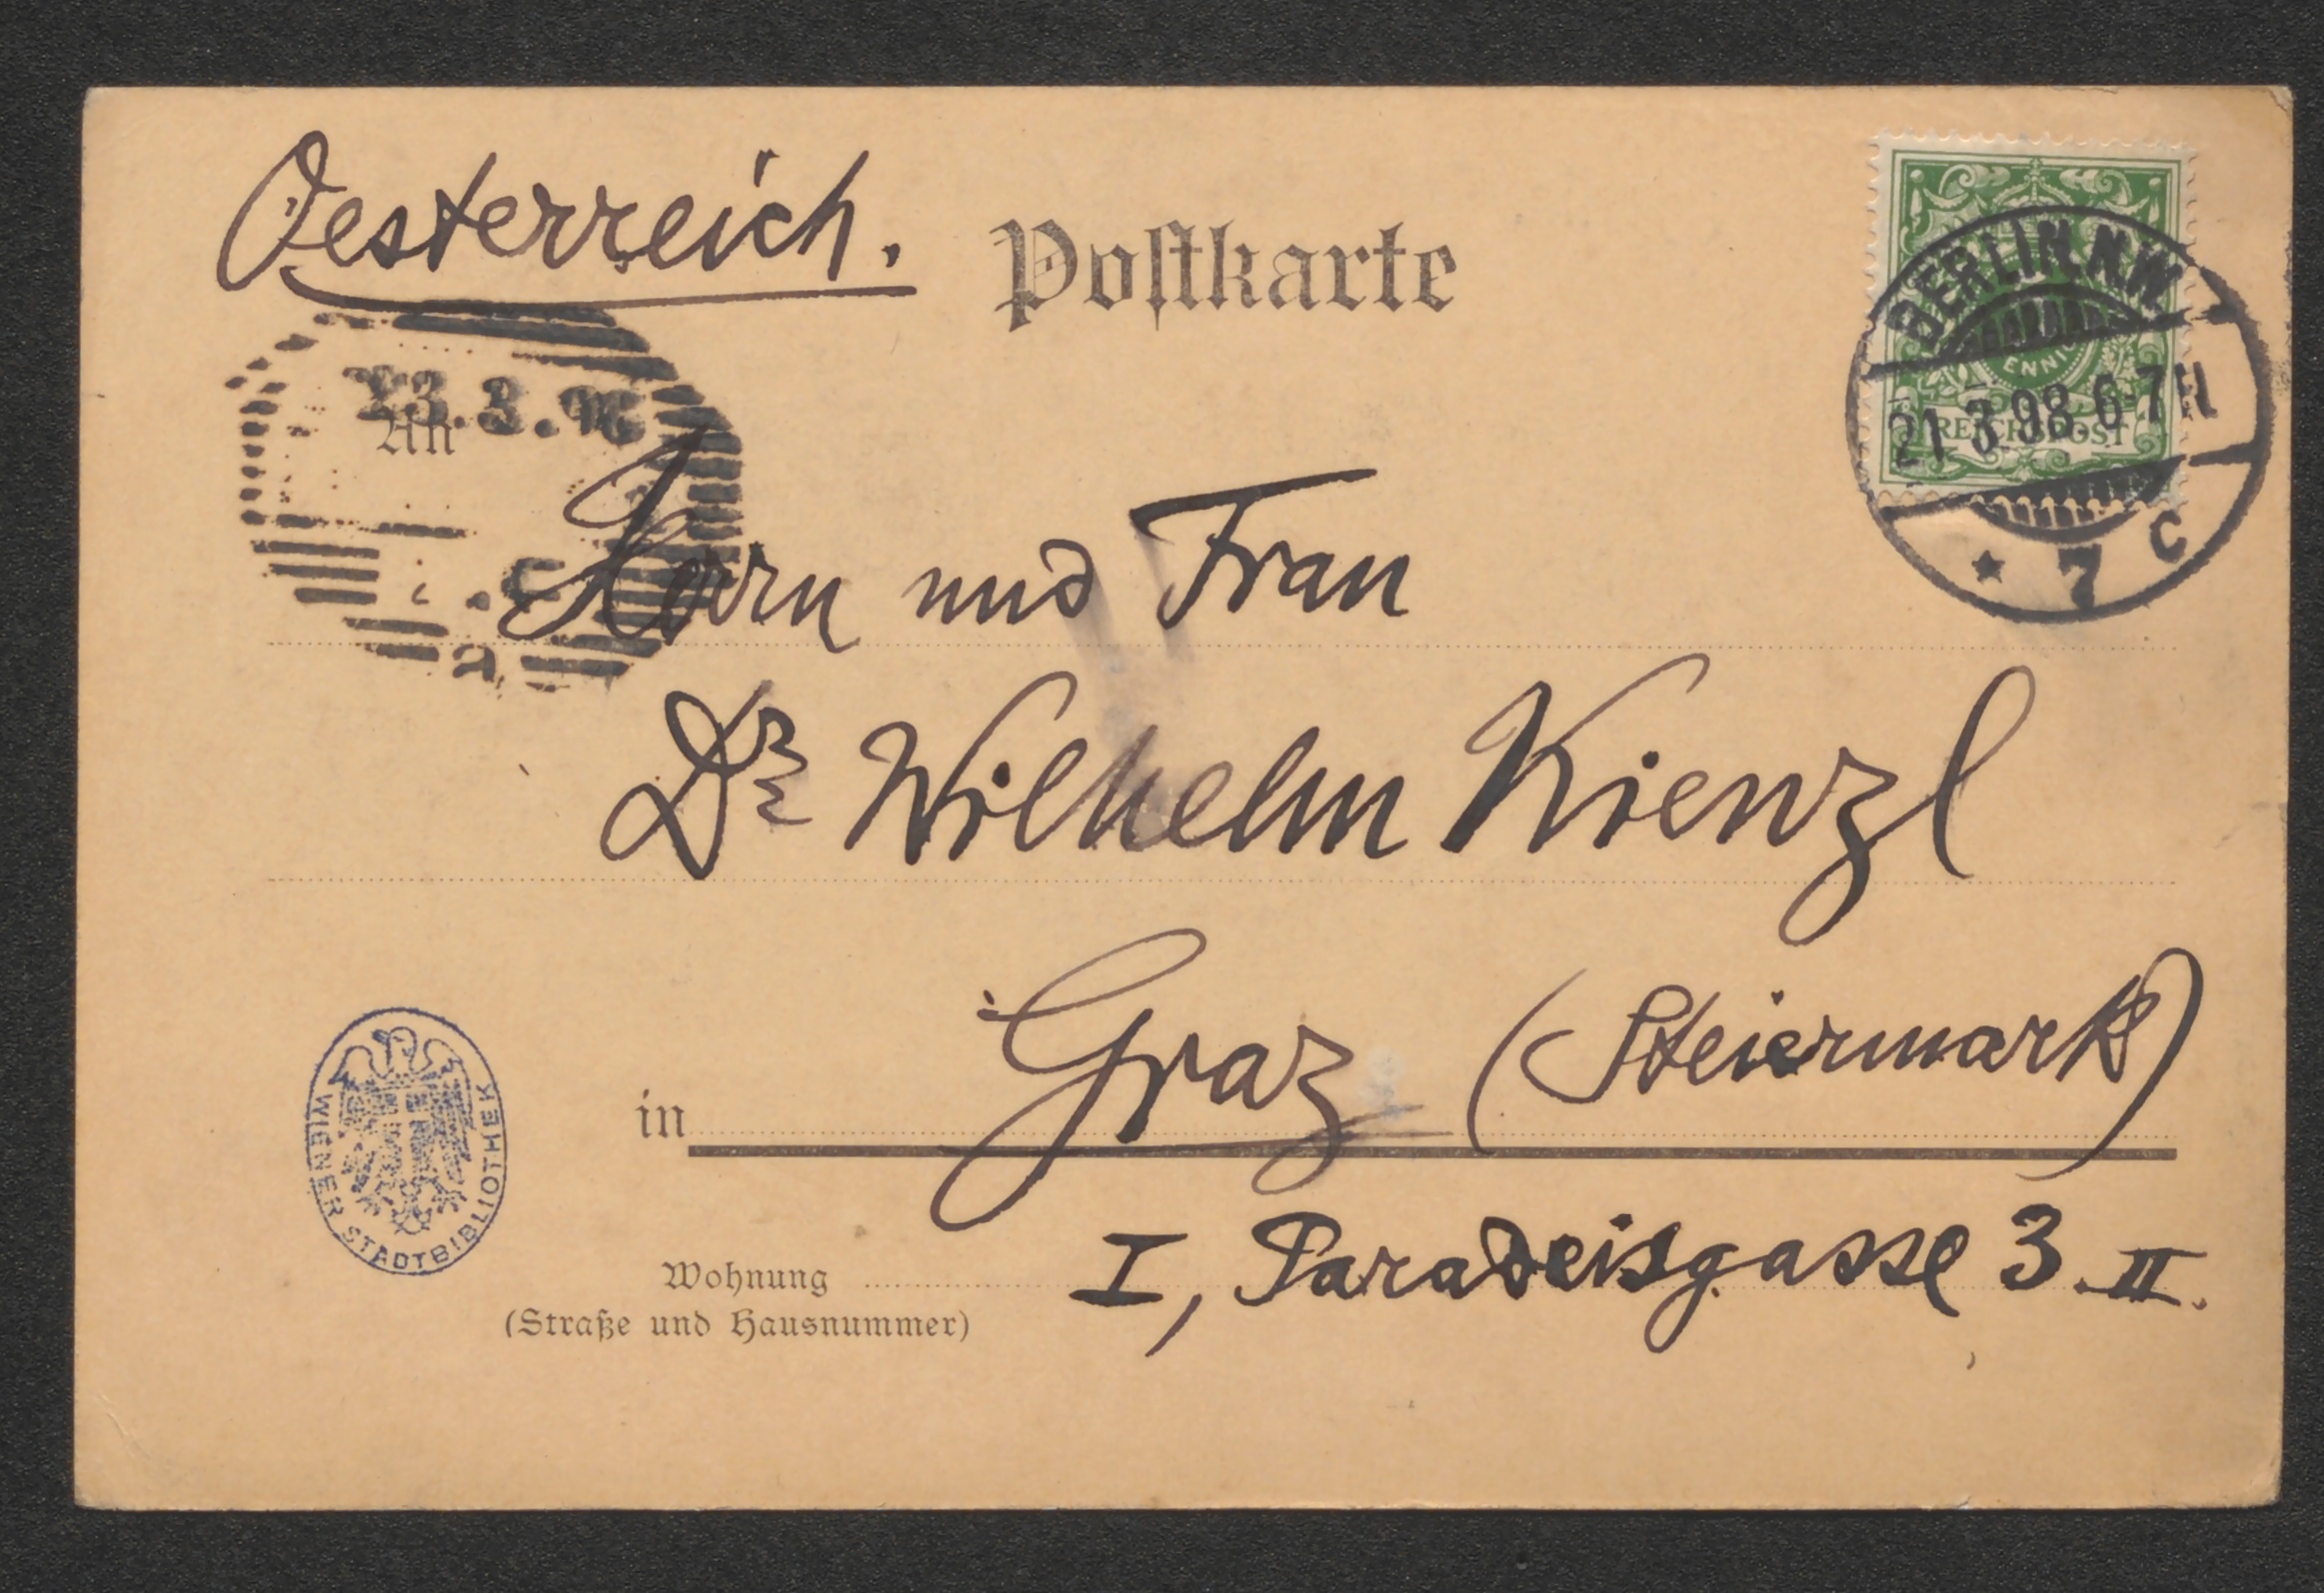 Oesterreich.
Postkarte
BERLIN.N.W.
21.3.98.6-7N
REICHSPOST
* 7 c
23.3.
An
Herrn und Frau
Dr Wilhelm Kienzl
in Graz (Steiermark)
I, Paradeisgasse 3. II.
Wohnung
(Straße und Hausnummer)
WIENER STADTBIBLIOTHEK